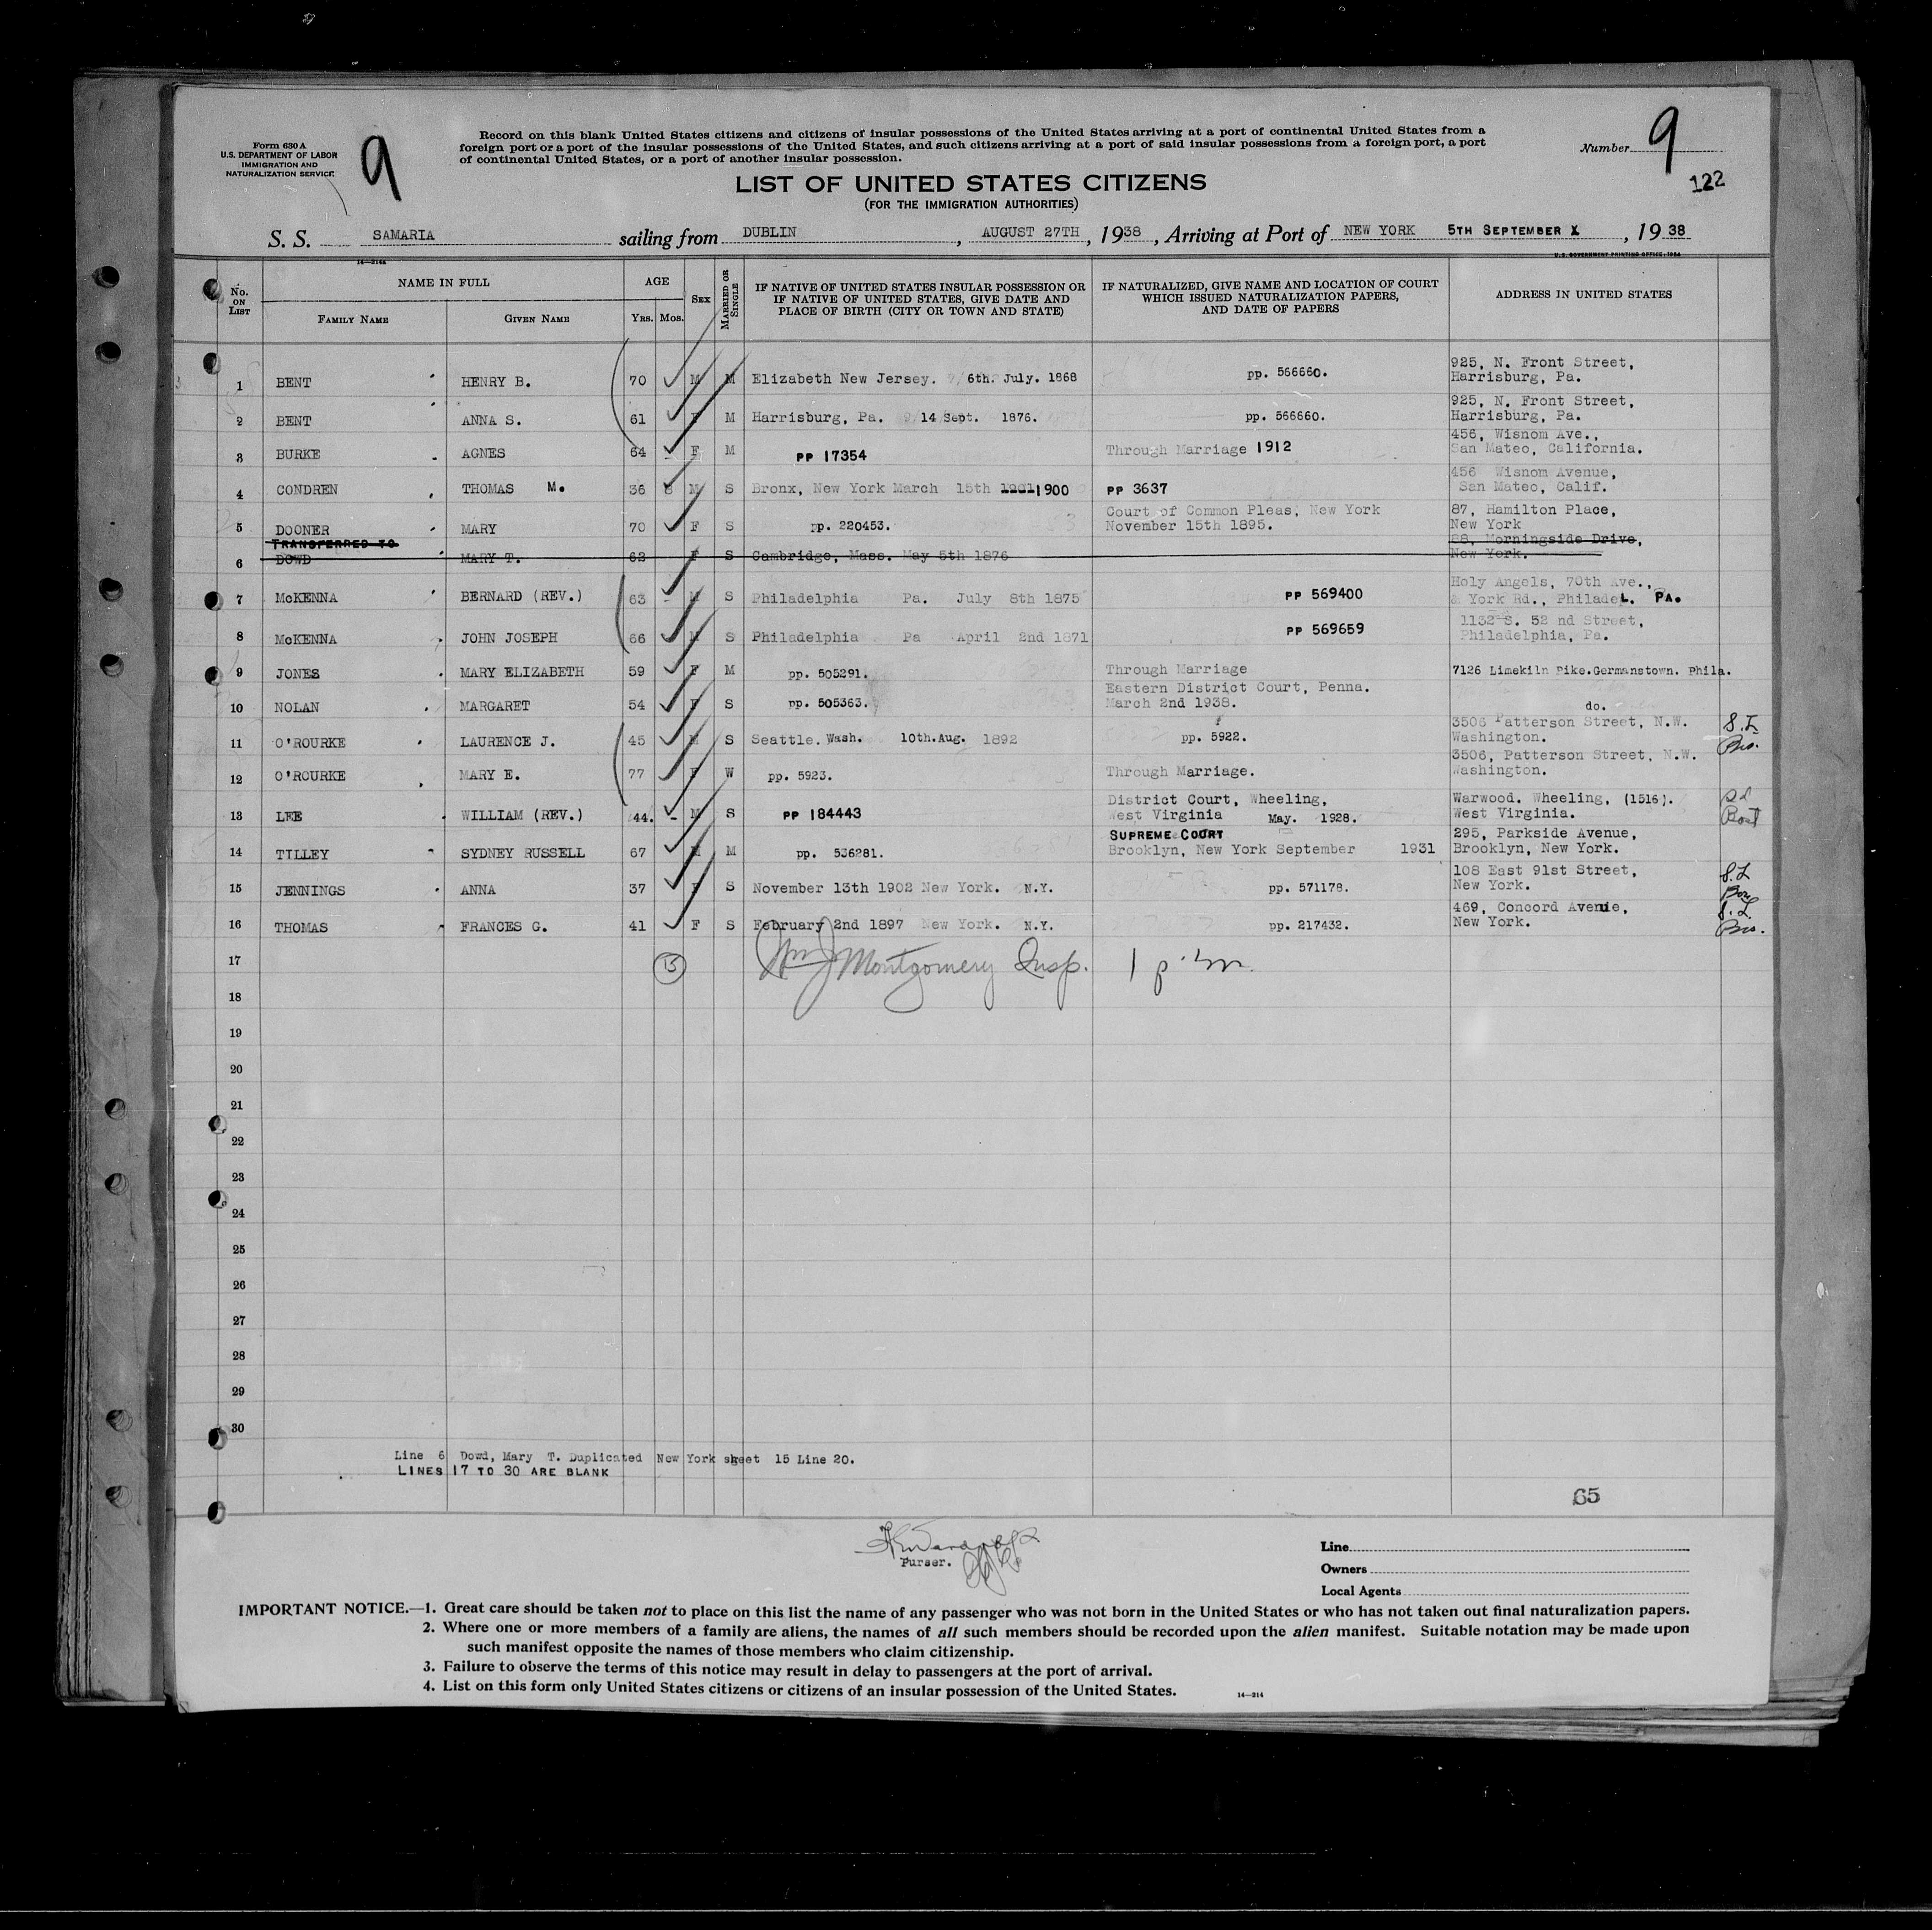 Form 630 A
U.S. DEPARTMENT OF LABOR
IMMIGRATION AND
NATURALIZATION SERVICE
9
Record on this blank United States citizens and citizens of insular possessions of the United States arriving at a port of continental United States from a
foreign port or a port of the insular possessions of the United States, and such citizens arriving at a port of said insular possessions from a foreign port, a port
of continental United States, or a port of another insular possession.
Number 9
122
LIST OF UNITED STATES CITIZENS
(FOR THE IMMIGRATION AUTHORITIES)
S. S. SAMARIA sailing from DUBLIN, AUGUST 27TH, 1938, Arriving at Port of NEW YORK 5TH SEPTEMBER X, 1938
14—214A
U.S. GOVERNMENT PRINTING OFFICE: 1934
No. ON LIST NAME IN FULL AGE SEX MARRIED OR SINGLE IF NATIVE OF UNITED STATES INSULAR POSSESSION OR IF NATIVE OF UNITED STATES, GIVE DATE AND PLACE OF BIRTH (CITY OR TOWN AND STATE) IF NATURALIZED, GIVE NAME AND LOCATION OF COURT WHICH ISSUED NATURALIZATION PAPERS, AND DATE OF PAPERS ADDRESS IN UNITED STATES
FAMILY NAME GIVEN NAME YRS. MOS.
1 BENT HENRY B. 70 M M Elizabeth New Jersey. 6th. July. 1868 pp. 566660. 925, N. Front Street, Harrisburg, Pa.
2 BENT ANNA S. 61 F M Harrisburg, Pa. 14 Sept. 1876. pp. 566660. 925, N. Front Street, Harrisburg, Pa.
3 BURKE AGNES 64 - F M PP 17354 Through Marriage 1912 456, Wisnom Ave., San Mateo, California.
4 CONDREN THOMAS M. 36 M S Bronx, New York March 15th 1901 1900 PP 3637 456 Wisnom Avenue, San Mateo, Calif.
5 DOONER MARY 70 F S pp. 220453. Court of Common Pleas, New York November 15th 1895. 87, Hamilton Place, New York
TRANSFERRED TO
6 DOWD MARY T. 62 F S Cambridge, Mass. May 5th 1876 88, Morningside Drive, New York.
7 McKENNA BERNARD (REV.) 63 - M S Philadelphia Pa. July 8th 1875 PP 569400 Holy Angels, 70th Ave., & York Rd., Philadel. PA.
8 McKENNA JOHN JOSEPH 66 M S Philadelphia Pa April 2nd 1871 PP 569659 1132 S. 52 nd Street, Philadelphia, Pa.
9 JONES MARY ELIZABETH 59 F M pp. 505291. Through Marriage 7126 Limekiln Pike.Germanstown. Phila.
10 NOLAN MARGARET 54 F S pp. 505363. Eastern District Court, Penna. March 2nd 1938. do.
11 O'ROURKE LAURENCE J. 45 M S Seattle. Wash. 10th.Aug. 1892 pp. 5922. 3506 Patterson Street, N.W. Washington.
12 O'ROURKE MARY E. 77 F W pp. 5923. Through Marriage. 3506, Patterson Street, N.W. Washington.
13 LEE WILLIAM (REV.) 44. - M S PP 184443 District Court, Wheeling, West Virginia May. 1928. Warwood. Wheeling, (1516). West Virginia.
14 TILLEY SYDNEY RUSSELL 67 M M pp. 536281. SUPREME COURT Brooklyn, New York September 1931 295, Parkside Avenue, Brooklyn, New York.
15 JENNINGS ANNA 37 F S November 13th 1902 New York. N.Y. pp. 571178. 108 East 91st Street, New York.
16 THOMAS FRANCES G. 41 F S February 2nd 1897 New York. N.Y. pp. 217432. 469, Concord Avenue, New York.
17 15 Wm J Montgomery Insp.
18
19
20
21
22
23
24
25
26
27
28
29
30
Line 6 Dowd, Mary T. Duplicated New York sheet 15 Line 20.
LINES 17 TO 30 ARE BLANK
65
Purser.
Line
Owners
Local Agents
IMPORTANT NOTICE.—1. Great care should be taken not to place on this list the name of any passenger who was not born in the United States or who has not taken out final naturalization papers.
2. Where one or more members of a family are aliens, the names of all such members should be recorded upon the alien manifest. Suitable notation may be made upon
such manifest opposite the names of those members who claim citizenship.
3. Failure to observe the terms of this notice may result in delay to passengers at the port of arrival.
4. List on this form only United States citizens or citizens of an insular possession of the United States.
14—214